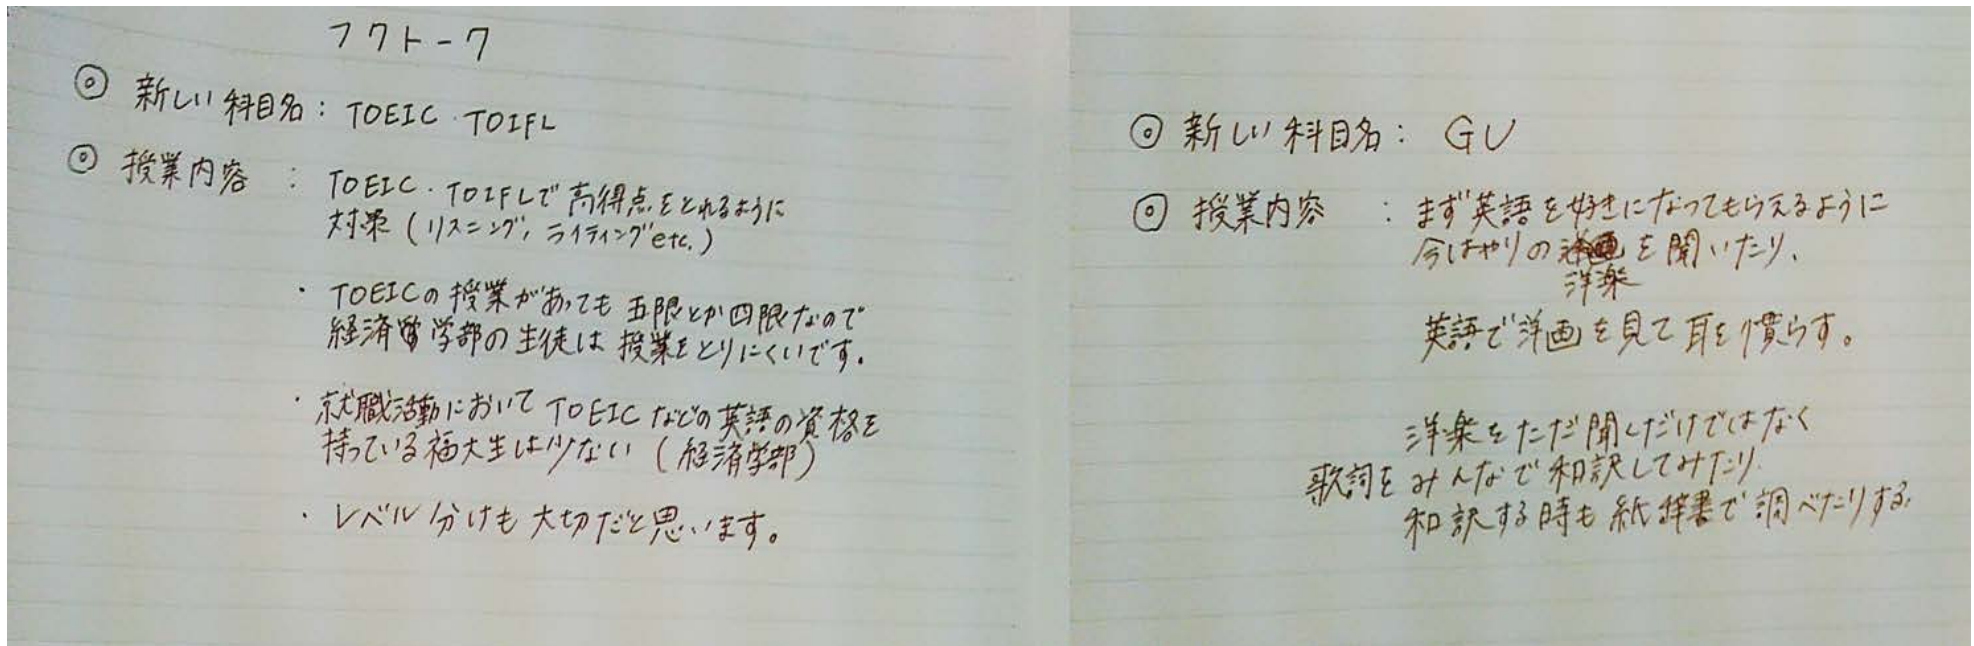 フクトーク
◎ 新しい科目名：TOEIC・TOIFL
◎ 授業内容 ：TOEIC・TOIFLで高得点をとれるように
対策（リスニング，ライティングetc.）
・TOEICの授業があっても五限とか四限なので
経済学部の生徒は授業をとりにくいです。
・就職活動においてTOEICなどの英語の資格を
持っている福大生は少ない（経済学部）
・レベル分けも大切だと思います。
◎ 新しい科目名：GU
◎ 授業内容 ：まず英語を好きになってもらえるように
今はやりの洋楽を聞いたり、
英語で洋画を見て耳を慣らす。
洋楽をただ聞くだけではなく
歌詞をみんなで和訳してみたり、
和訳する時も紙辞書で調べたりする。